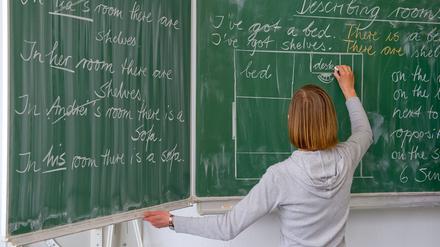 In Lea's room there are
shelves
In her room there are
shelves.
In Andrei's room there is a
sofa.
In his room there is a sofa.
Describing room
I've got a bed. There is a
I've got shelves. There are
bed
desk
on the
on the
next to
opposi
on the
6 Sen